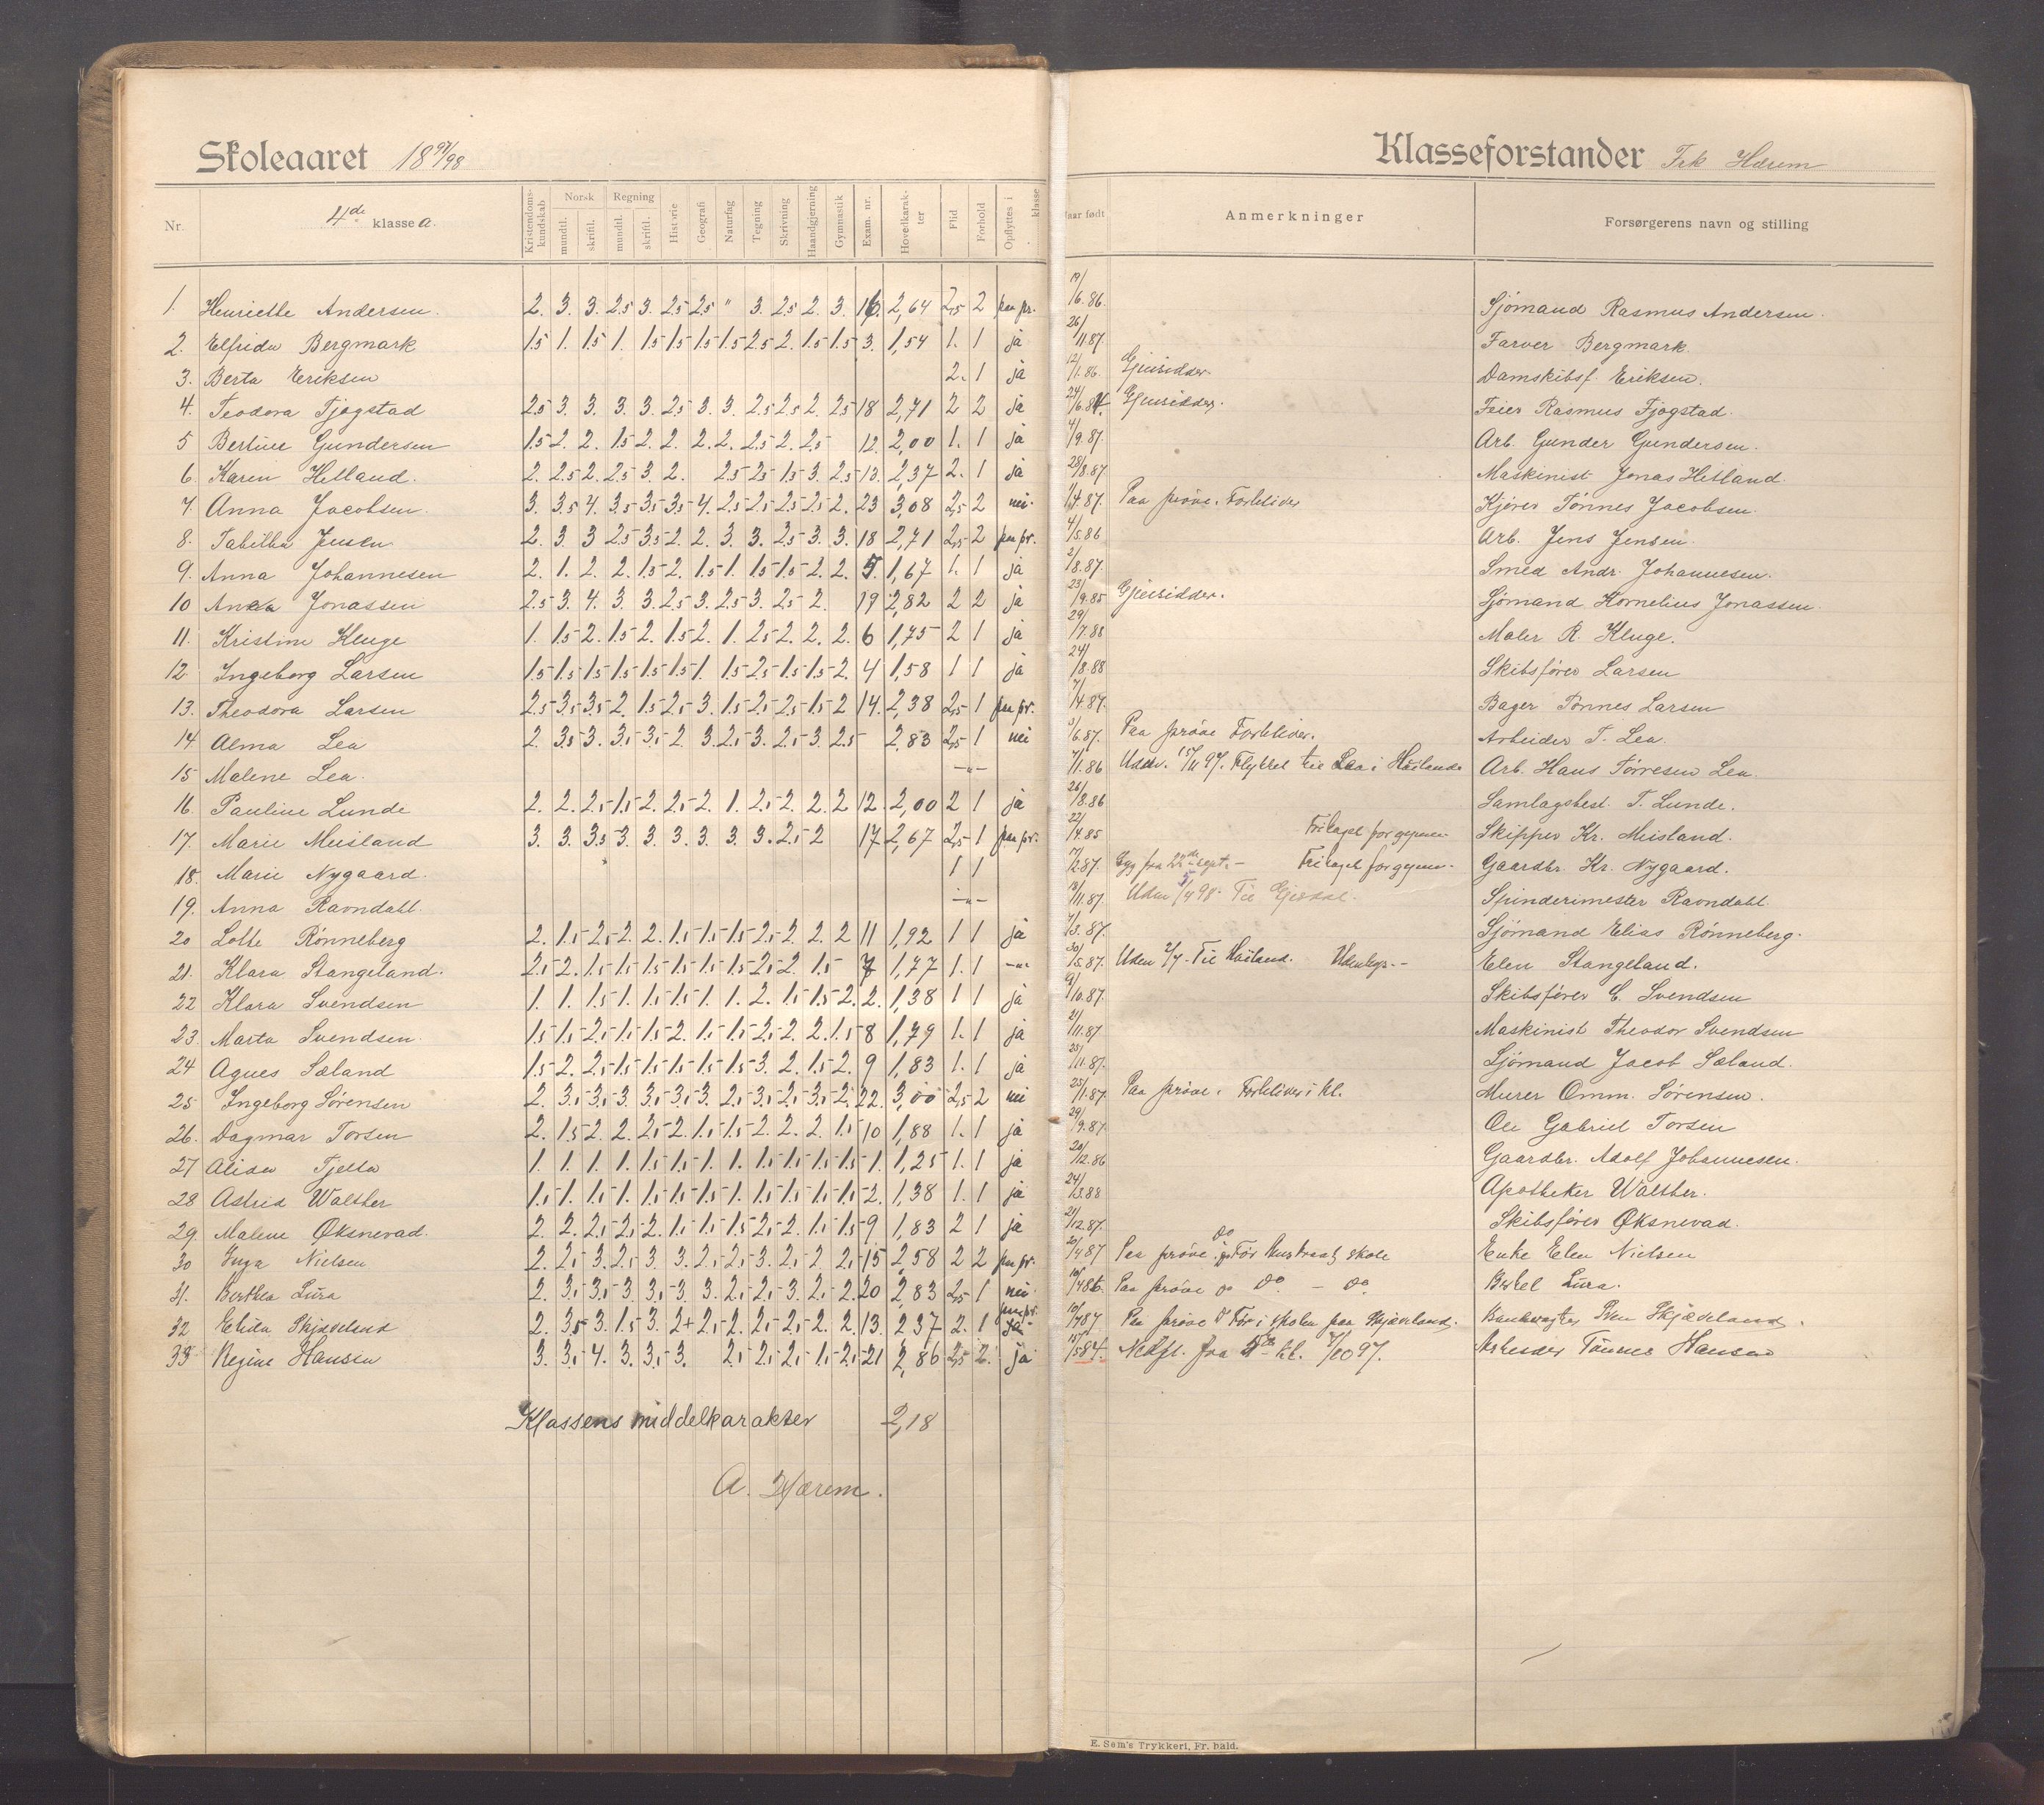 Skoleaaret 18 97/98
Klasseforstander Frk Hærem
Nr.
4de klasse a.
Kristendomskundskab
Norsk
mundtl.
skriftl.
Regning
mundtl.
skriftl.
Historie
Geografi
Naturfag
Tegning
Skrivning
Haandgjerning
Gymnastik
Exam. nr.
Hovedkarakter
Flid
Forhold
Opflyttes i klasse
Naar født
Anmerkninger
Forsørgerens navn og stilling
1. Henriette Andersen. 2. 3. 3. 2.5 3. 2.5 2.5 " 3. 2.5 2. 3. 16. 2,64 2,5 2 paa pr. 19/6.86. Sjømand Rasmus Andersen.
2. Elfrida Bergmark 1.5 1. 1.5 1. 1.5 1.5 1.5 1.5 2.5 2. 1.5 1.5 3. 1,54 1. 1 ja 26/11.87. Farver Bergmark.
3. Berta Eriksen 2. 1 ja 12/1.86. Gjensidder. Damskibsf. Eriksen.
4. Teodora Fjogstad 2.5 3. 3. 3. 3. 2.5 3. 3. 2.5 2.5 2. 2.5 18 2,71 2 2 ja 24/6.84. Gjensidder. Feier Rasmus Fjogstad.
5 Bertine Gundersen 1.5 2. 2. 1.5 2. 2. 2. 2. 2.5 2. 2.5 12. 2,00 1. 1 ja 4/9.87. Arb. Gunder Gundersen.
6. Karen Hetland. 2. 2.5 2. 2.5 3. 2. 2.5 2.5 1.5 3. 2.5 13. 2,37 2. 1 ja 28/8.87 Maskinist Jonas Hetland.
7. Anna Jacobsen. 3. 3.5 4. 3.5 3.5 3.5 4. 2.5 2.5 2.5 2.5 2. 23 3,08 2,5 2 nei. 1/4.87. Paa prøve. Forbliver Kjører Tønnes Jacobsen.
8. Tabitha Jensen 2. 3. 3 2.5 3.5 2. 2. 3. 3. 2.5 3. 3. 18 2,71 2,5 2 paa pr. 4/5.86 Arb. Jens Jensen.
9. Anna Johannesen 2. 1. 2. 2. 1.5 2. 1.5 1. 1.5 1.5 2. 2. 5. 1,67 1. 1 ja 2/8.87. Smed Andr. Johannesen.
10 Anna Jonassen 2.5 3. 4. 3. 3. 2.5 3. 2.5 3. 2.5 2. 19 2,82 2 2 ja 23/9.85 Gjensidder. Sjømand Kornelius Jonassen.
11. Kristine Kluge 1. 1.5 2. 1.5 2. 1.5 2. 1. 2.5 2. 2. 2. 6 1,75 2 1 ja 29/7.88 Maler R. Kluge.
12 Ingeborg Larsen 1.5 1.5 1.5 1.5 1.5 1.5 1. 1.5 2.5 1.5 1.5 2. 4 1,58 1 1 ja 24/8.88 Skibsfører Larsen
13. Theodora Larsen 2.5 3.5 3.5 2. 1.5 2.5 3. 1.5 2.5 2.5 1.5 2 14. 2,38 2,5 1 paa pr. 7/4.87. Bager Tønnes Larsen
14 Alma Lea 2. 3.5 3. 3.5 3.5 2. 3. 2.5 3. 2.5 3. 2.5 2,83 2,5 1 nei 3/6.87. Paa prøve Forbliver. Arbeider T. Lea.
15 Malene Lea. —"— 7/1.86 Udskr. 15/11 97. Flyttet til Lea i Høiland Arb. Hans Tørresen Lea.
16. Pauline Lunde 2. 2. 2.5 1.5 2. 2.5 2. 1. 2.5 2. 2. 2 12. 2,00 2 1 ja 26/8.86 Samlagsbest. T. Lunde.
17. Marie Meisland 3. 3. 3.5 3. 3. 3. 3. 3. 3. 2.5 2 17 2,67 2,5 1 paa pr. 22/4.85 Fritaget for gymn. Skipper Kr. Meisland.
18. Marie Nygaard. 1 1 17/2.87. Syg fra 22de sept. — Fritaget for gymn. Gaardbr. Kr. Nygaard.
19. Anna Ravndahl. —"— 18/11.87 Uden 5/4 98. Til Gjesdal. Spinderimester Ravndahl.
20 Lotte Rønneberg 2. 1.5 2.5 2. 2. 1.5 1.5 1.5 2.5 2. 2. 2 11 1,92 1 1 ja 7/3.87. Sjømand Elias Rønneberg.
21. Klara Stangeland. 2.5 2. 1.5 1.5 1.5 1.5 1.5 1.5 2.5 2. 1.5 7 1,77 1. 1 —"— 30/5.87. Uden 2/7. Til Høiland. Elen Stangeland.
22 Klara Svendsen 1. 1. 1.5 1. 1.5 1.5 1. 1. 2. 1.5 1.5 2. 2. 1,38 1 1 ja 9/10.87. Skibsfører C. Svendsen
23. Marta Svendsen. 1.5 1.5 2.5 1.5 1.5 2. 1.5 1.5 2.5 2. 2. 1.5 8 1,79 1. 1 ja 21/11.87. Maskinist Theodor Svendsen
24 Agnes Sæland 1.5 2. 2.5 1.5 1.5 1.5 1.5 1.5 3. 2. 1.5 2. 9 1,83 1. 1 ja 25/11.87. Sjømand Jacob Sæland.
25 Ingeborg Sørensen 2. 3.5 3.5 3. 3.5 3.5 3. 2.5 3.5 2.5 3.5 2. 22. 3,00 2,5 2 nei 25/1.87. Paa prøve. Forbliver i kl. Murer Omm. Sørensen.
26. Dagmar Torsen 2. 1.5 2. 2. 2.5 2. 1.5 1.5 2. 2. 2. 1.5 10 1,88 1. 1 ja 29/9.87. Ole Gabriel Torsen
27 Alida Tjelta 1. 1. 1. 1. 1.5 1.5 1. 1. 1.5 1.5 1.5 1.5 1. 1,25 1. 1 ja 20/12.86 Gaardbr. Adolf Johannesen.
28 Astrid Walther 1.5 1. 1.5 1. 1.5 1.5 1.5 1. 1.5 1.5 1.5 1.5 2. 1,38 1. 1 ja 24/3.88 Apotheker Walther.
29. Malene Øksnevad. 2. 2. 2.5 2.5 2. 1.5 1.5 1.5 2.5 2. 1.5 1.5 9 1,83 2 1 ja 21/12.87. Skibsfører Øksnevad.
30 Inga Nielsen 2. 2.5 3. 2.5 3. 3. 2.5 2.5 3. 2.5 2. 2.5 15 2,58 2 2 paa pr. 20/4 87 Paa prøve. do Før skole Enke Elen Nielsen
31. Berthea Lura 2. 3.5 3.5 3. 3.5 3. 3. 2.5 2.5 3. 2.5 2. 20 2,83 2,5 1 nei. 10/4 86. Paa prøve do — do. Berkel Lura.
32 Elida Skjæveland 2. 3.5 3. 1.5 3. 2+ 2.5 2. 2.5 2.5 2. 2. 13. 2,37 2. 1 paa pr. ja 10/7 87. Paa prøve Før i skolen paa Skjæveland. Skjæveland.
33 Regine Hansen 3. 3.5 4. 3. 3.5 3. 2.5 2.5 2.5 1.5 2.5 21 2,86 2,5 2. ja 15/5 84. Nedfl. fra 5te kl. 4/10 97. Arbeider Tönnes Hansen
Klassens middelkarakter 2,18
A. Hærem.
E. Sem's Trykkeri, Fr. hald.